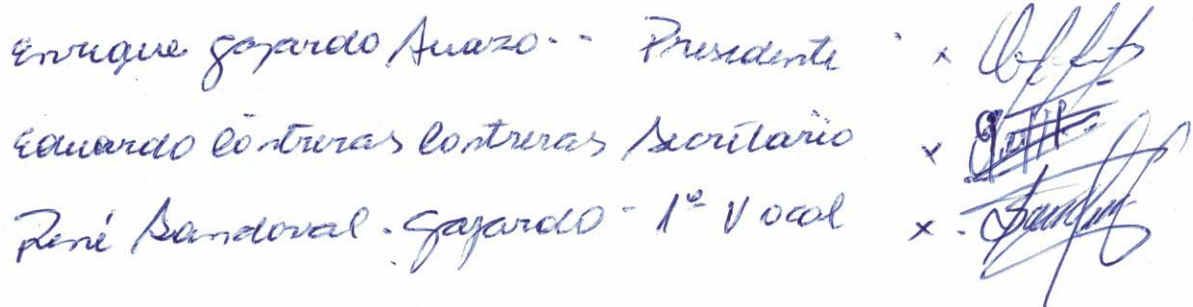 Enrique Gajardo Suazo -- Presidente x
Eduardo Contreras Contreras Secretario x
René Sandoval - Gajardo - 1º Vocal x -